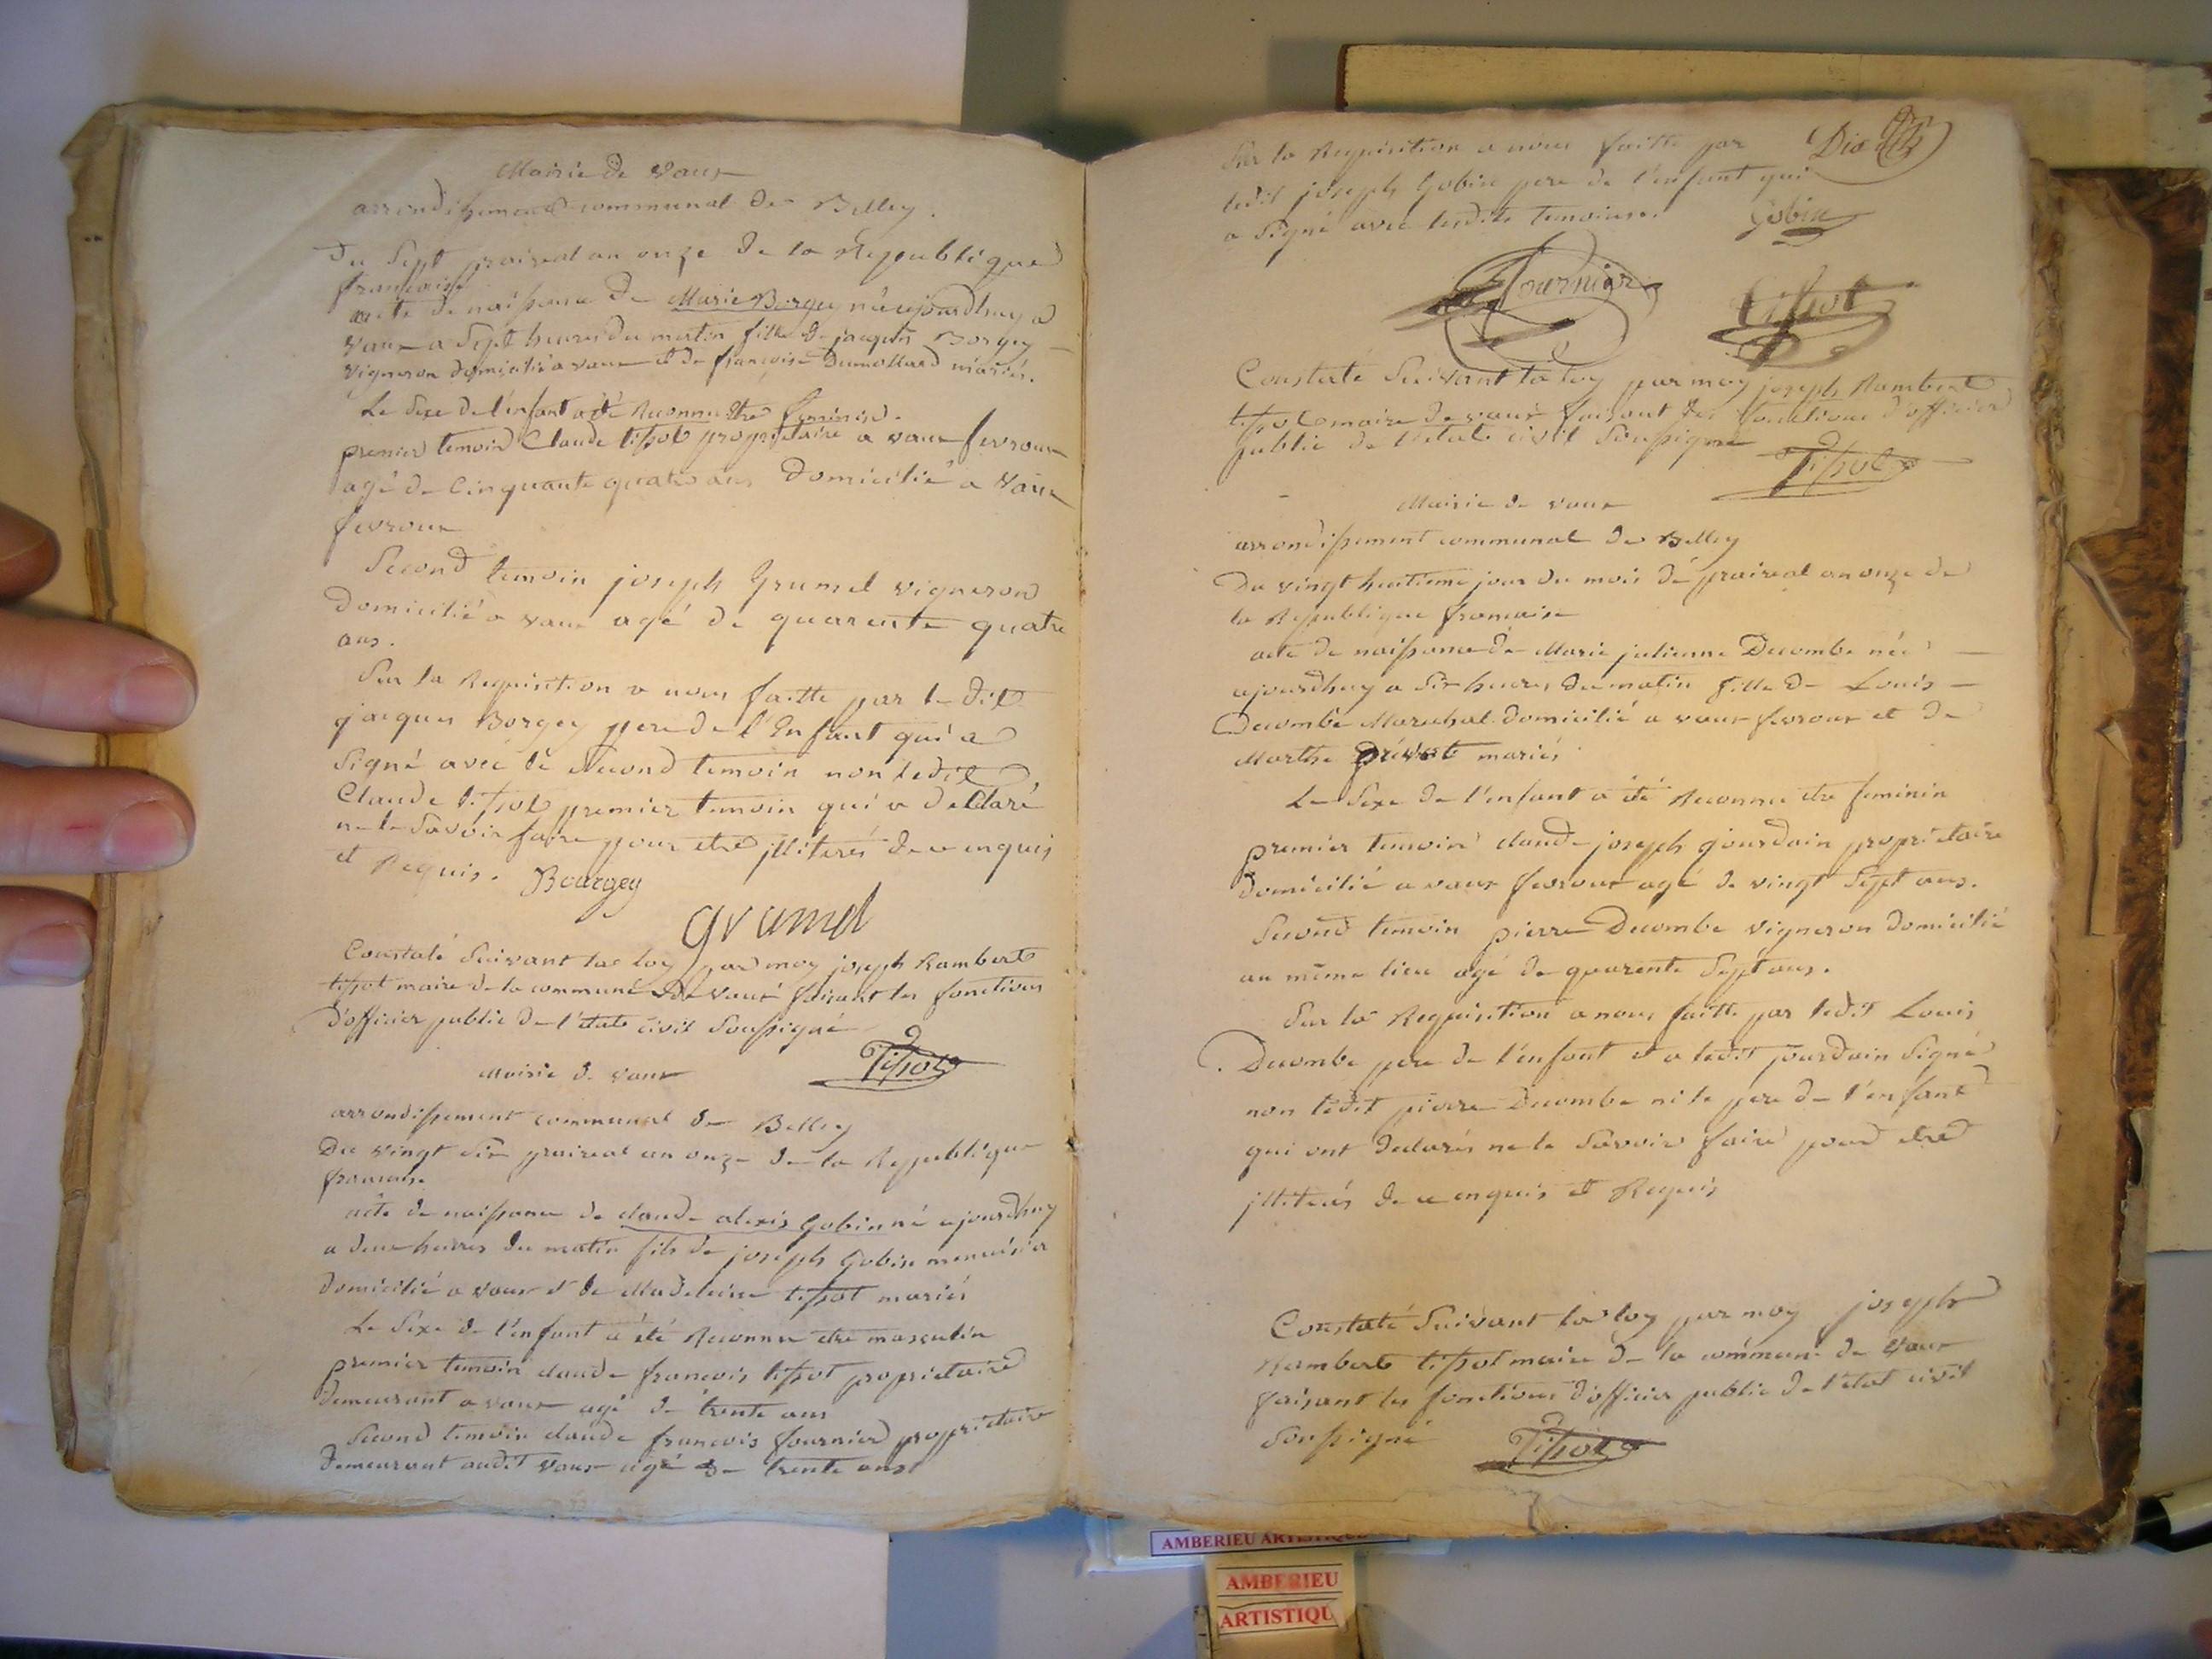 Mairie de vaux
arrondissement communal de Belley.
Du Sept prairial an onze de la Republique
francaise
acte de naissance de Marie Borgey née ajourdhuy a
Vaux a Sept heures du matin fille de jacques Borgey
vigneron domicilié a vaux et de françoise Dumollard mariés.
Le Sexe de l'enfant a été Reconnu etre feminin.
premier temoin Claude tissot propriétaire a vaux fevroux
agé de Cinquante quatre ans Domicilié a Vaux
fevroux
Second temoin joseph Grumel vigneron
Domicilié a vaux agé de quarente quatre
ans.
Sur la Requisition a nous faitte par le dit
jacques Borgey pere de l'Enfant qui a
Signé avec le Second temoin non ledit
Claude tissot premier temoin qui a declaré
ne le Savoir faire pour etre illiterés de ce enquis
et Requis. Bourgey
grumel
Constaté Suivant la loy par moy joseph Rambert
tissot maire de la commune de vaux faisant les fonctions
d'officier public de l'état civil Soussigné
Tissot
Mairie de vaux
arrondissement communal de Belley
Du vingt Six prairial an onze de la Republique
francaise
acte de naissance de claude alexis Gobin né ajourdhuy
a deux heures du matin fils de joseph Gobin menuisier
domicilié a vaux et de Madeleine tissot mariés
Le Sexe de l'enfant a été Reconnu etre masculin
premier temoin claude francois tissot proprietaire
demeurant a vaux agé de trente ans
Second temoin claude francois fournier proprietaire
demeurant audit vaux agé de trente ans
Sur la Requisition a nous faitte par Dix
ledit joseph Gobin pere de l'enfant qui
a Signé avec lesdits temoins. Gobin
fournier Tissot
Constaté Suivant la loy par moy joseph Rambert
tissot maire de vaux faisant les fonctions d'officier
public de l'état civil Soussigné
Tissot
Mairie de vaux
arrondissement communal de Belley
Du vingt huitieme jour du mois de prairial an onze de
la Republique francaise
acte de naissance de Marie julienne Decombe née
ajourdhuy a Six heures du matin fille de Louis
Decombe Marechal domicilié a vaux fevroux et de
Marthe prévot mariés
Le Sexe de l'enfant a été Reconnu etre feminin
premier temoin claude joseph jourdain proprietaire
domicilié a vaux fevroux agé de vingt Sept ans.
Second temoin pierre Decombe vigneron domicilié
au même lieu agé de quarente Sept ans.
Sur la Requisition a nous faitte par ledit Louis
Decombe pere de l'enfant et a ledit jourdain Signé
non ledit pierre Decombe ni le pere de l'enfant
qui ont declarés ne le Savoir faire pour etre
illiterés de ce enquis et Requis
Constaté Suivant la loy par moy joseph
Rambert tissot maire de la commune de vaux
faisant les fonctions d'officier public de l'état civil
Soussigné Tissot
AMBERIEU ARTISTIQUE
AMBERIEU
ARTISTIQU